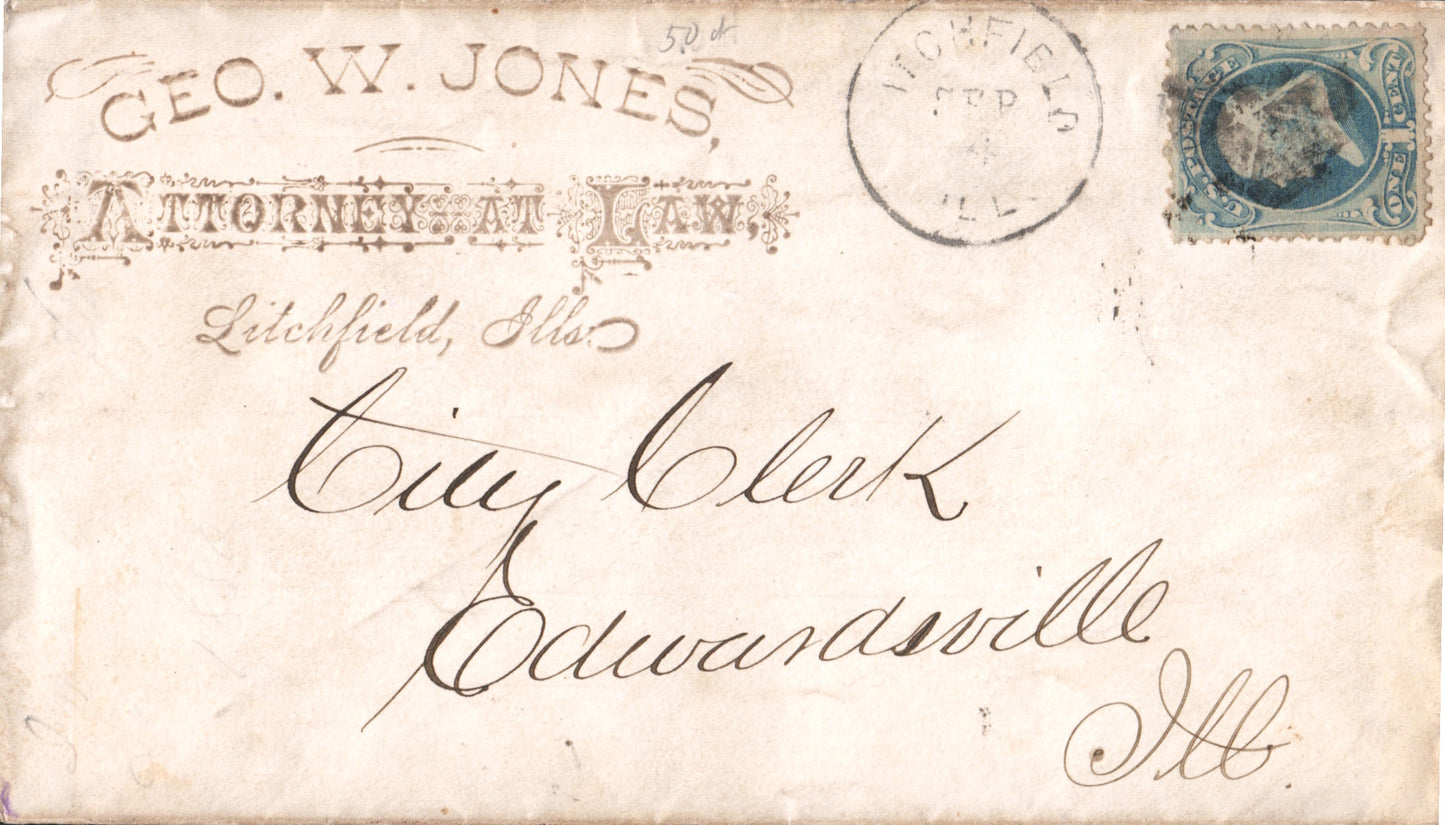 50 ct
GEO. W. JONES,
ATTORNEY AT LAW,
Litchfield, Ills.
ITCHFIELD
SEP
4
ILL.
U.S. POSTAGE
ONE 1 CENT
City Clerk
Edwardsville
Ill.